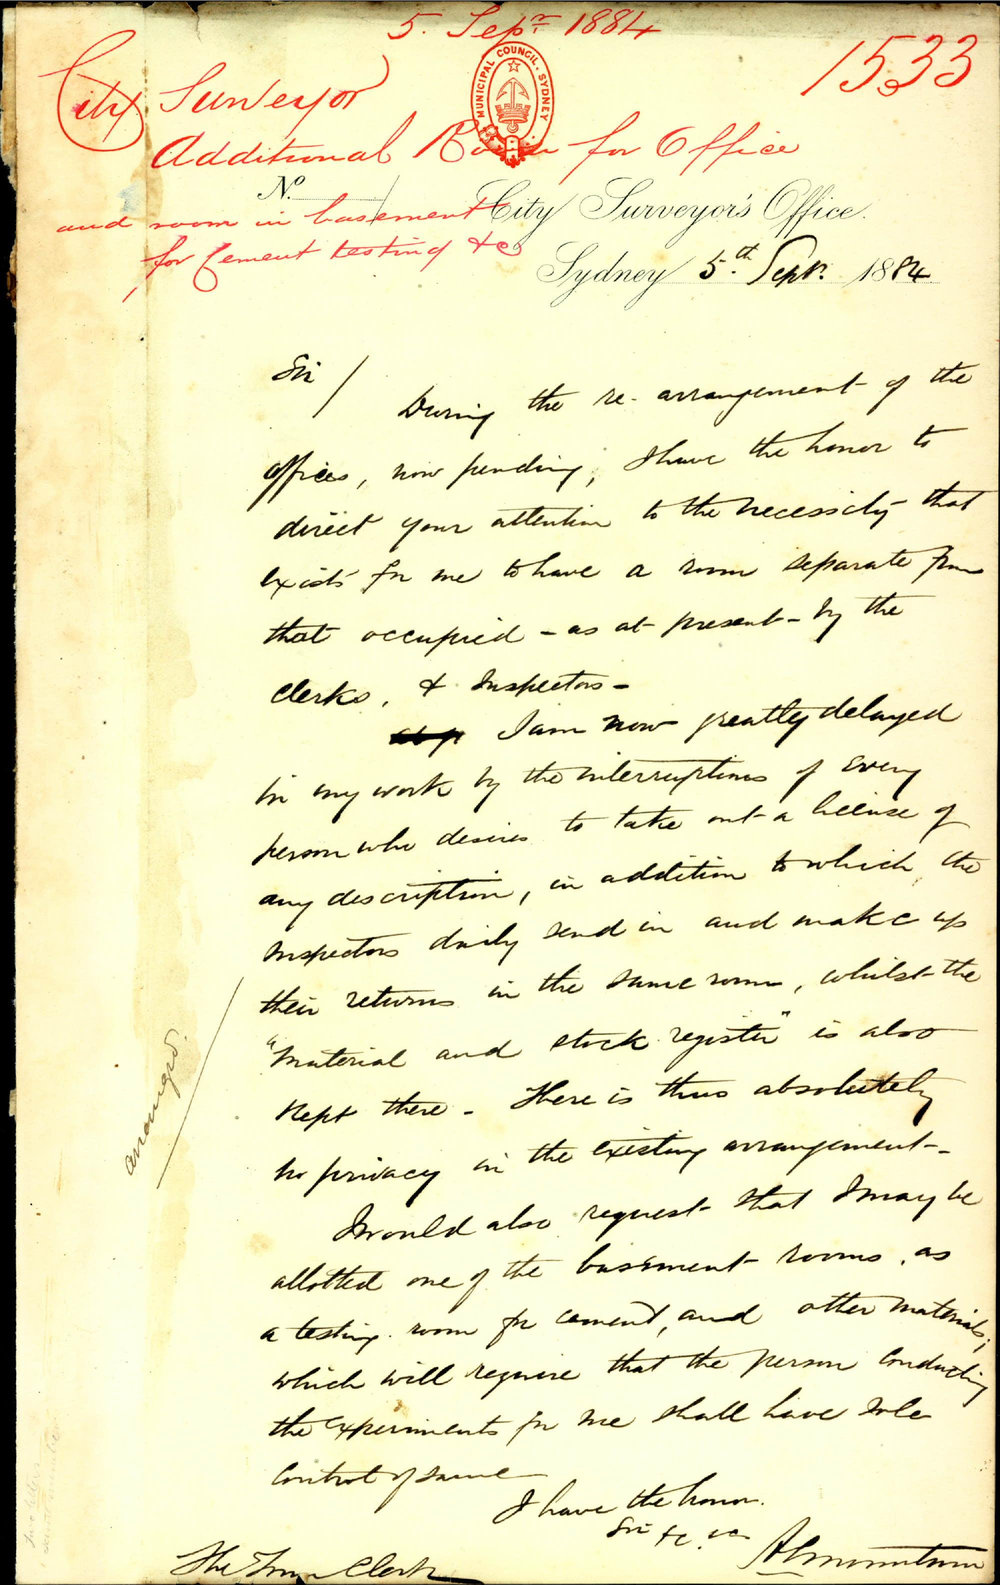 5. Sepr. 1884
1533
MUNICIPAL COUNCIL. SYDNEY
City Surveyor
Additional Room for Office
and room in basement
for Cement testing &c
No.
City Surveyor's Office.
Sydney 5th. Sept. 1884
Sir /
During the re-arrangement of the
offices, now pending, I have the honor to
direct your attention to the necessity that
exists for me to have a room separate from
that occupied - as at present - by the
clerks, & Inspectors -
I am now greatly delayed
in my work by the interruptions of every
person who desires to take out a license of
any description, in addition to which, the
Inspectors daily send in and make up
their returns in the same room, whilst the
"Material and stock register" is also
kept there - There is thus absolutely
no privacy in the existing arrangement -
I would also request that I may be
allotted one of the basement rooms, as
a testing room for cement, and other materials,
which will require that the person conducting
the experiments for me shall have sole
control of same
I have the honor.
Sir &c. &c
The Town Clerk
arranged.